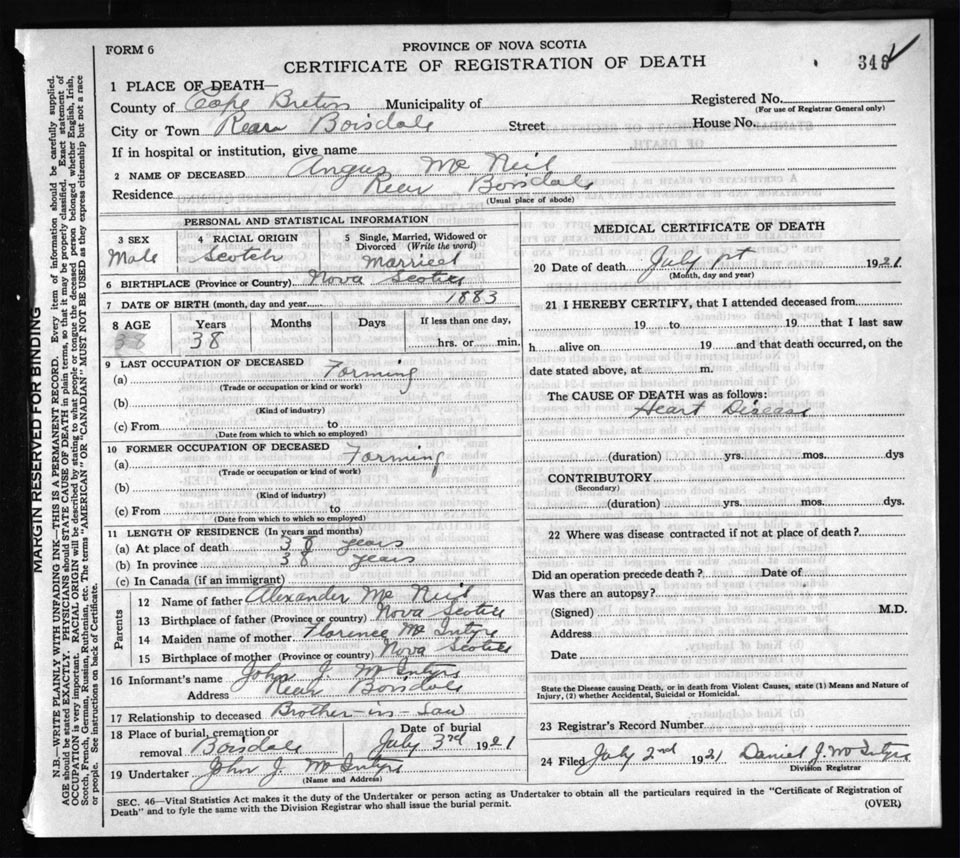 FORM 6
PROVINCE OF NOVA SCOTIA
CERTIFICATE OF REGISTRATION OF DEATH
1 PLACE OF DEATH—
County of Cape Breton Municipality of Registered No.
(For use of Registrar General only)
City or Town Rear Boisdale Street House No.
If in hospital or institution, give name
2 NAME OF DECEASED Angus Mc Neil
Residence Rear Boisdale
(Usual place of abode)
PERSONAL AND STATISTICAL INFORMATION
3 SEX Male
4 RACIAL ORIGIN Scotch
5 Single, Married, Widowed or Divorced (Write the word) Married
6 BIRTHPLACE (Province or Country) Nova Scotia
7 DATE OF BIRTH (month, day and year) 1883
8 AGE Years Months Days If less than one day,
38 38 hrs. or min.
9 LAST OCCUPATION OF DECEASED
(a) Farming
(Trade or occupation or kind or work)
(b)
(Kind of industry)
(c) From to
(Date from which to which so employed)
10 FORMER OCCUPATION OF DECEASED
(a) Farming
(Trade or occupation or kind of work)
(b)
(Kind of industry)
(c) From to
(Date from which to which so employed)
11 LENGTH OF RESIDENCE (In years and months)
(a) At place of death 38 years
(b) In province 38 years
(c) In Canada (if an immigrant)
Parents
12 Name of father Alexander Mc Neil
13 Birthplace of father (Province or country) Nova Scotia
14 Maiden name of mother Florence Mc Intyre
15 Birthplace of mother (Province or country) Nova Scotia
16 Informant's name John J. Mc Intyre
Address Rear Boisdale
17 Relationship to deceased Brother-in-Law
18 Place of burial, cremation or removal Boisdale
Date of burial July 3rd 1921
19 Undertaker John J. McIntyre
(Name and Address)
MEDICAL CERTIFICATE OF DEATH
20 Date of death July 1st 1921
(Month, day and year)
21 I HEREBY CERTIFY, that I attended deceased from
19 to 19 that I last saw
h alive on 19 and that death occurred, on the
date stated above, at m.
The CAUSE OF DEATH was as follows:
Heart Disease
(duration) yrs. mos. dys
CONTRIBUTORY
(Secondary)
(duration) yrs. mos. dys.
22 Where was disease contracted if not at place of death?
Did an operation precede death? Date of
Was there an autopsy?
(Signed) M.D.
Address
Date
State the Disease causing Death, or in death from Violent Causes, state (1) Means and Nature of
Injury, (2) whether Accidental, Suicidal or Homicidal.
23 Registrar's Record Number
24 Filed July 2nd 1921 Daniel J. McIntyre
Division Registrar
SEC. 46—Vital Statistics Act makes it the duty of the Undertaker or person acting as Undertaker to obtain all the particulars required in the "Certificate of Registration of
Death" and to fyle the same with the Division Registrar who shall issue the burial permit. (OVER)
MARGIN RESERVED FOR BINDING
N.B.—WRITE PLAINLY WITH UNFADING INK—THIS IS A PERMANENT RECORD. Every item of information should be carefully supplied.
AGE should be stated EXACTLY. PHYSICIANS should STATE CAUSE OF DEATH in plain terms, so that it may be properly classified. Exact statement of
OCCUPATION is very important. RACIAL ORIGIN will be described by stating to what people or tongue the deceased person belonged whether English, Irish,
Scotch, French, German, Russian, Ruthenian, etc. The terms "AMERICAN" OR "CANADIAN" MUST NOT BE USED as they express citizenship but not a race
or people. See instructions on back of Certificate.